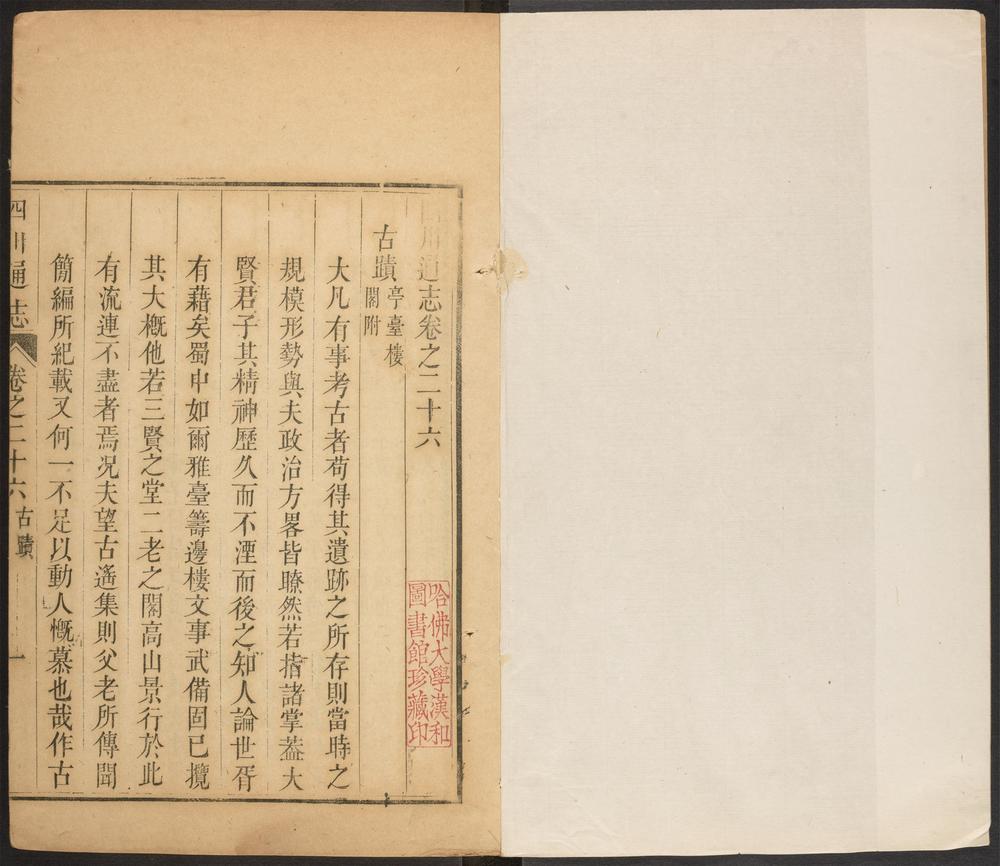 四川通志卷之二十六
古蹟 亭臺樓
閣附
大凡有事考古者苟得其遺跡之所存則當時之
規模形勢與夫政治方畧皆瞭然若指諸掌葢大
賢君子其精神歷久而不湮而後之知人論世胥
有藉矣蜀中如爾雅臺籌邊樓文事武備固已攬
其大槪他若三賢之堂二老之閣高山景行於此
有流連不盡者焉况夫望古遙集則父老所傳聞
簡編所紀載又何一不足以動人慨慕也哉作古
四川通志 卷之二十六 古蹟 一
哈佛大學漢和
圖書館珍藏印